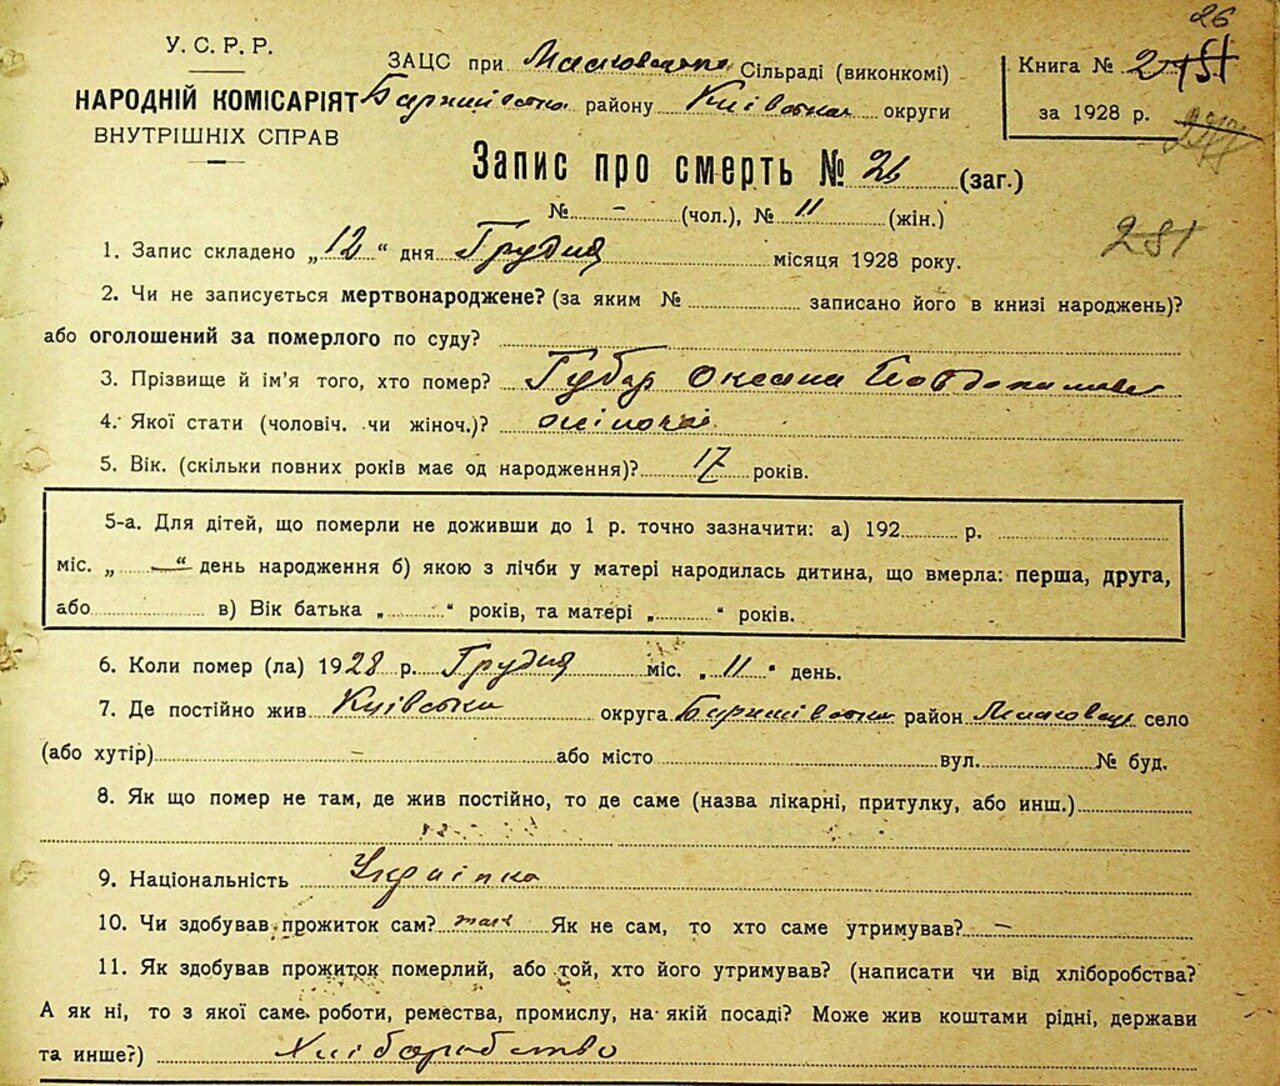 26
У. С. Р. Р.
НАРОДНІЙ КОМІСАРІЯТ
ВНУТРІШНІХ СПРАВ
ЗАЦС при Сільраді (виконкомі)
району Київська округи
Книга №
за 1928 р.
Запис про смерть № 26 (заг.)
№ - (чол.), № 11 (жін.)
281
1. Запис складено „12“ дня Грудня місяця 1928 року.
2. Чи не записується мертвонароджене? (за яким № записано його в книзі народжень)?
або оголошений за померлого по суду?
3. Прізвище й ім'я того, хто помер? Губар Оксана
4. Якої стати (чоловіч. чи жіноч.)?
5. Вік. (скільки повних років має од народження)? 17 років.
5-а. Для дітей, що померли не доживши до 1 р. точно зазначити: а) 192 р.
міс. „ — “ день народження б) якою з лічби у матері народилась дитина, що вмерла: перша, друга,
або в) Вік батька „ “ років, та матері „ “ років.
6. Коли помер (ла) 1928 р. Грудня міс. „11“ день.
7. Де постійно жив Київська округа район село
(або хутір) – або місто вул. № буд.
8. Як що помер не там, де жив постійно, то де саме (назва лікарні, притулку, або инш.)
9. Національність Українка
10. Чи здобував прожиток сам? так Як не сам, то хто саме утримував? –
11. Як здобував прожиток померлий, або той, хто його утримував? (написати чи від хліборобства?
А як ні, то з якої саме роботи, ремества, промислу, на якій посаді? Може жив коштами рідні, держави
та инше?) Хліборобство